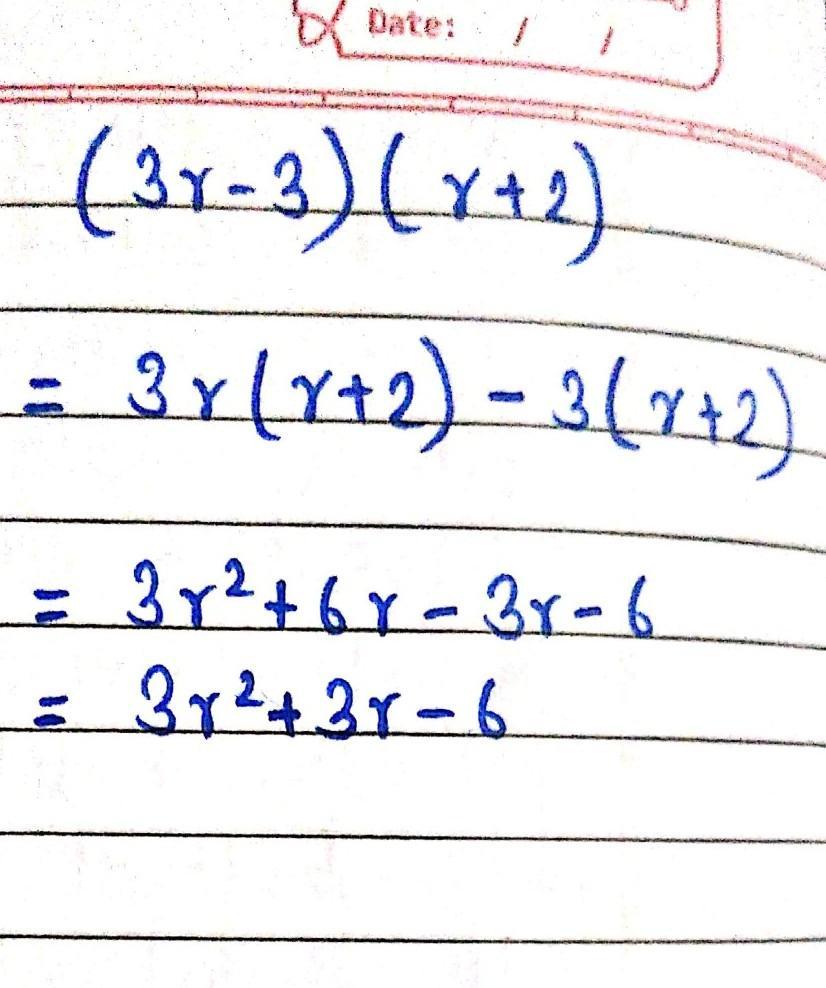 Date: / /
(3r-3)(r+2)
= 3r(r+2) - 3(r+2)
= 3r²+6r-3r-6
= 3r²+3r-6